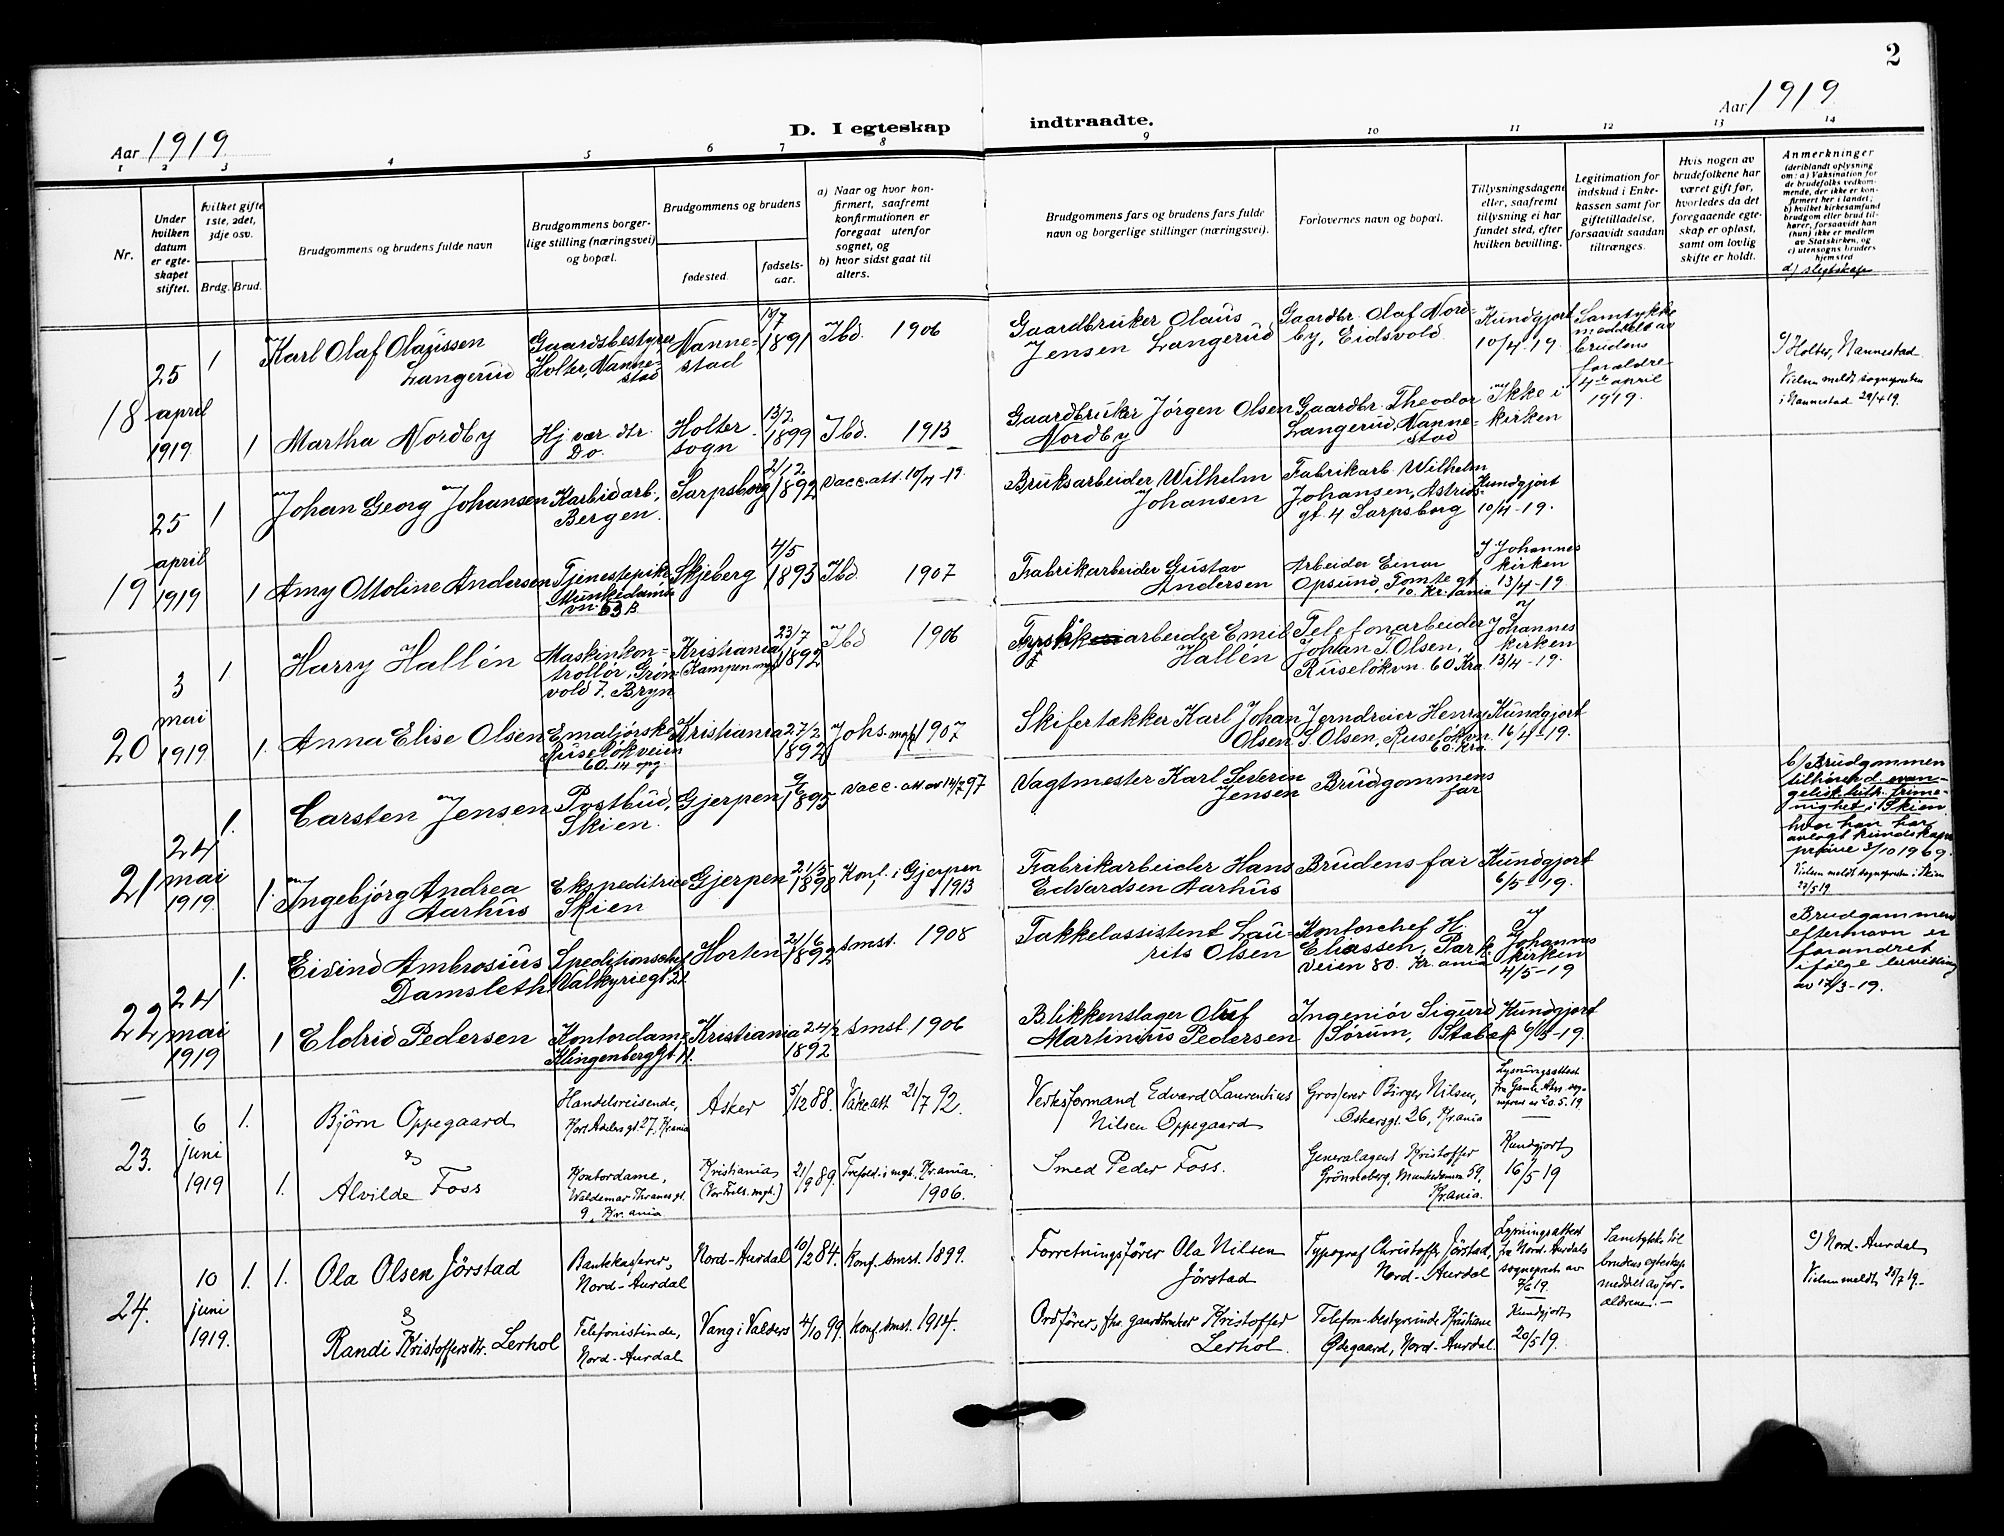 2
Aar 1919
D. I egteskap indtraadte.
Aar 1919
1 2 3 4 5 6 7 8 9 10 11 12 13 14
Nr.
Under hvilken datum er egteskapet stiftet.
hvilket gifte 1ste, 2det, 3dje osv.
Brdg. Brud.
Brudgommens og brudens fulde navn
Brudgommens borgerlige stilling (næringsvei) og bopæl.
Brudgommens og brudens
fødested.
fødselsaar.
a) Naar og hvor konfirmert, saafremt konfirmationen er foregaat utenfor sognet, og
b) hvor sidst gaat til alters.
Brudgommens fars og brudens fars fulde navn og borgerlige stillinger (næringsvei).
Forlovernes navn og bopæl.
Tillysningsdagene eller, saafremt tillysning ei har fundet sted, efter hvilken bevilling.
Legitimation for indskud i Enkekassen samt for giftetilladelse, forsaavidt saadan tiltrænges.
Hvis nogen av brudefolkene har været gift før, hvorledes da det foregaaende egteskap er opløst, samt om lovlig skifte er holdt.
Anmerkninger
(deriblandt oplysning om: a) Vaksination for de brudefolks vedkommende, der ikke er konfirmert her i landet; b) hvilket kirkesamfund brudgom eller brud tilhører, forsaavidt han (hun) ikke er medlem av Statskirken, og c) utensogns bruders hjemsted
d) slegtskap
18
25 april 1919
1
Karl Olaf Olaussen Langerud
Gaardsbestyrer Holter, Nannestad
Nannestad
13/7 1891
Ibd. 1906
Gaardbruker Olaus Jensen Langerud
Gaardbr. Olaf Nordby, Eidsvold.
Kundgjort 10/4-19.
Samtykke meddelt av brudens forældre 4de april 1919.
c) Holter, Nannestad
Vielsen meldt sognepresten i Nannestad 29/4 19.
1
Martha Nordby
Hj. vær. dtr. Do.
Holter sogn
13/2 1899
Ibd. 1913
Gaardbruker Jörgen Olsen Nordby
Gaardbr. Theodor Langerud, Nannestad
Ikke i kirken
19
25 april 1919
1
Johan Georg Johansen
Karbidarb., Bergen.
Sarpsborg
2/12 1892
Vacc. att. 10/4-19.
Bruksarbeider Wilhelm Johansen
Fabrikarb. Wilhelm Johansen, Astridsgt. 4 Sarpsborg
Kundgjort 10/4-19.
1
Amy Ottoline Andersen
Tjenestepike Munkedamsvn. 63 B
Skjeberg
4/5 1893
Ibd. 1907
Fabrikarbeider Gustav Andersen
Arbeider Einar Opsund, Tomtegt. 10. Kr.ania
I Johannes kirken 13/4-19.
20
3 mai 1919
1
Harry Hallén
Maskinkontrollör, Grönvold 7. Bryn
Kristiania Kampen mgh.
23/7 1892
Ibd 1906
arbeider Emil Hallén
Telefonarbeider Johan T. Olsen, Ruselökvn. 60 Kra
I Johannes kirken 13/4-19.
1.
Anna Elise Olsen
Emaljörske Ruselökveien 60. 14 opg.
Kristiania
27/2 1892
Johs. mgh. 1907
Skifertækker Karl Johan Olsen
Jerndreier Henry T. Olsen, Ruselökvn. 60 Kra.
Kundgjort 16/4-19.
21
24 mai 1919
1.
Carsten Jensen
Postbud, Skien.
Gjerpen
9/6 1895
vacc. att. av 14/7 97
Vagtmester Karl Severin Jensen
Brudgommens far
b) Brudgommen tilhörer d. evangelisk luth. frimenighet i Skien hvor han har avlagt kundskapspröve 3/10 1909.
Vielsen meldt sognepresten i Skien 27/5 19
1.
Ingebjörg Andrea Aarhus
Ekspeditrice Skien
Gjerpen
21/5 1898
Konf. i Gjerpen 1913
Fabrikarbeider Hans Edvardsen Aarhus
Brudens far
Kundgjort 6/5-19.
22
24 mai 1919
1.
Eivind Ambrosius Damsleth
Speditionschef Valkyriegt. 21.
Horten
21/6 1892
Smst. 1908
Takkelassistent Laurits Olsen
Kontorchef H. Eliassen, Parkveien 80. Kr.ania
I Johannes kirken 4/5-19
Brudgommens efternavn er forandret ifölge bevilling av 17/3-19.
1
Eldrid Pedersen
Kontordame Klingenberggt. 11.
Kristiania
24/2 1892
Smst. 1906
Blikkenslager Oluf Martinius Pedersen
Ingeniör Sigurd Sörum, Stabek
Kundgjort 6/5-19.
23.
6 juni 1919
1.
Björn Oppegaard
&
Handelsreisende, Karl Adelersgt. 27, Kr.ania
Asker
5/12 88.
Vakc att 21/7 92.
Verksformand Edvard Laurentius Nilsen Oppegaard
Grosserer Birger Nilsen, Oskarsgt. 26, Kr.ania
Lysningsattest fra Gamle Aker sogneprest av 20.5.19
1.
Alvilde Foss
Kontordame, Valdemar Thranesgt. 9, Kr.ania
Kristiania (Vor Frels. mgh.)
21/9 89.
Trefold. mgh. Kr.ania. 1906.
Smed Peder Foss.
Generalagent Kristoffer Grönneberg, Munkedamsvn 59, Kr.ania.
Kundgjort 16/5 19
24.
10 juni 1919.
1. 1.
Ola Olsen Jörstad
&
Bankkasserer, Nord-Aurdal
Nord-Aurdal
10/2 84.
Konf. smst. 1899.
Forretningsförer Ola Nilsen Jörstad
Typograf Christoffer Jörstad, Nord-Aurdal
Lysningsattest fra Nord-Aurdals sogneprest av 7/6 19.
Samtykke til brudens egteskap meddelt av forældrene.-
c) Nord-Aurdal
Vielsen meldt 25/7 19.-
Randi Kristoffersdtr. Lerhol
Telefonistinde, Nord-Aurdal
Vang i Valders
4/10 99.
Konf. smst. 1914.
Ordförer, fhv. gaardbruker Kristoffer Lerhol.
Telefon-bestyrerinde Kristiane Ødegaard, Nord-Aurdal.
Kundgjort 20/5 19.